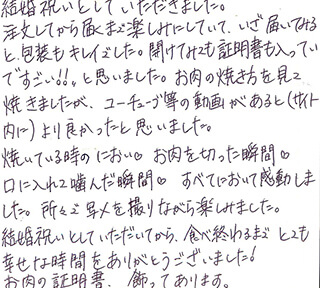 結婚祝いとしていただきました。
注文してから届くまで楽しみにしていて、いざ届いてみる
と、包装もキレイでした。開けてみても証明書も入ってい
てすごい!!、と思いました。お肉の焼き方を見て
焼きましたが、ユーチューブ等の動画があると(サイト
内に)より良かったと思いました。
焼いている時のにおい♡ お肉を切った瞬間♡
口に入れて噛んだ瞬間♡ すべてにおいて感動しま
した。所々で写メを撮りながら楽しみました。
結婚祝いとしていただいてから、食べ終わるまでとても
幸せな時間をありがとうございました!
お肉の証明書、飾ってあります。